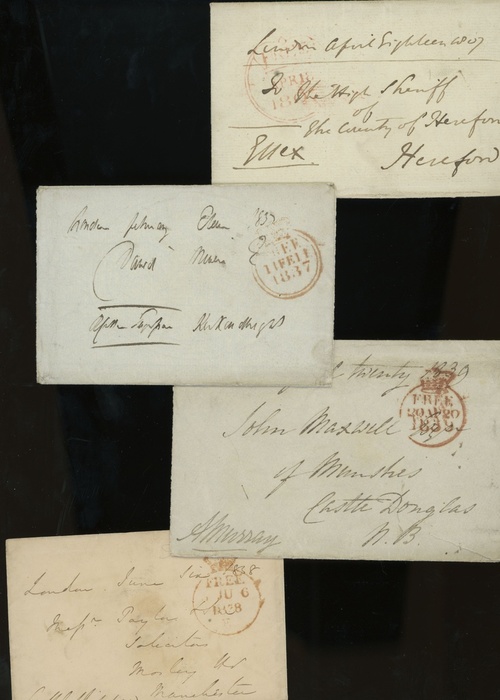 London April Eighteen 1807
APRIL
To The High Sheriff
of
The County of Hereford
Essex
Hereford
London february Eleven 1837
David
FREE
11 FE 11
1837
Kirkcudbright
twenty 1839
FREE
20 AP 20
1839
John Maxwell Esq
of Munshes
Castle Douglas
A Murray
N.B.
London June Six 1838
FREE
JU 6
1838
Messrs Taylor
Solicitors
Mosley St
Manchester